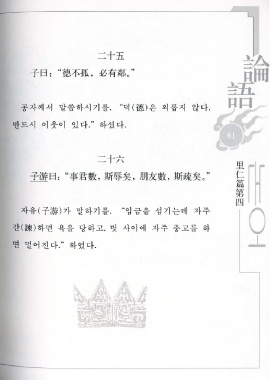 二十五
子曰: “德不孤, 必有鄰.”
공자께서 말씀하시기를, “덕(德)은 외롭지 않다.
반드시 이웃이 있다.” 하셨다.
二十六
子游曰: “事君數, 斯辱矣, 朋友數, 斯疏矣.”
자유(子游)가 말하기를, “임금을 섬기는데 자주
간(諫)하면 욕을 당하고, 벗 사이에 자주 충고를 하
면 멀어진다.” 하였다.
論語
61
里仁篇第四